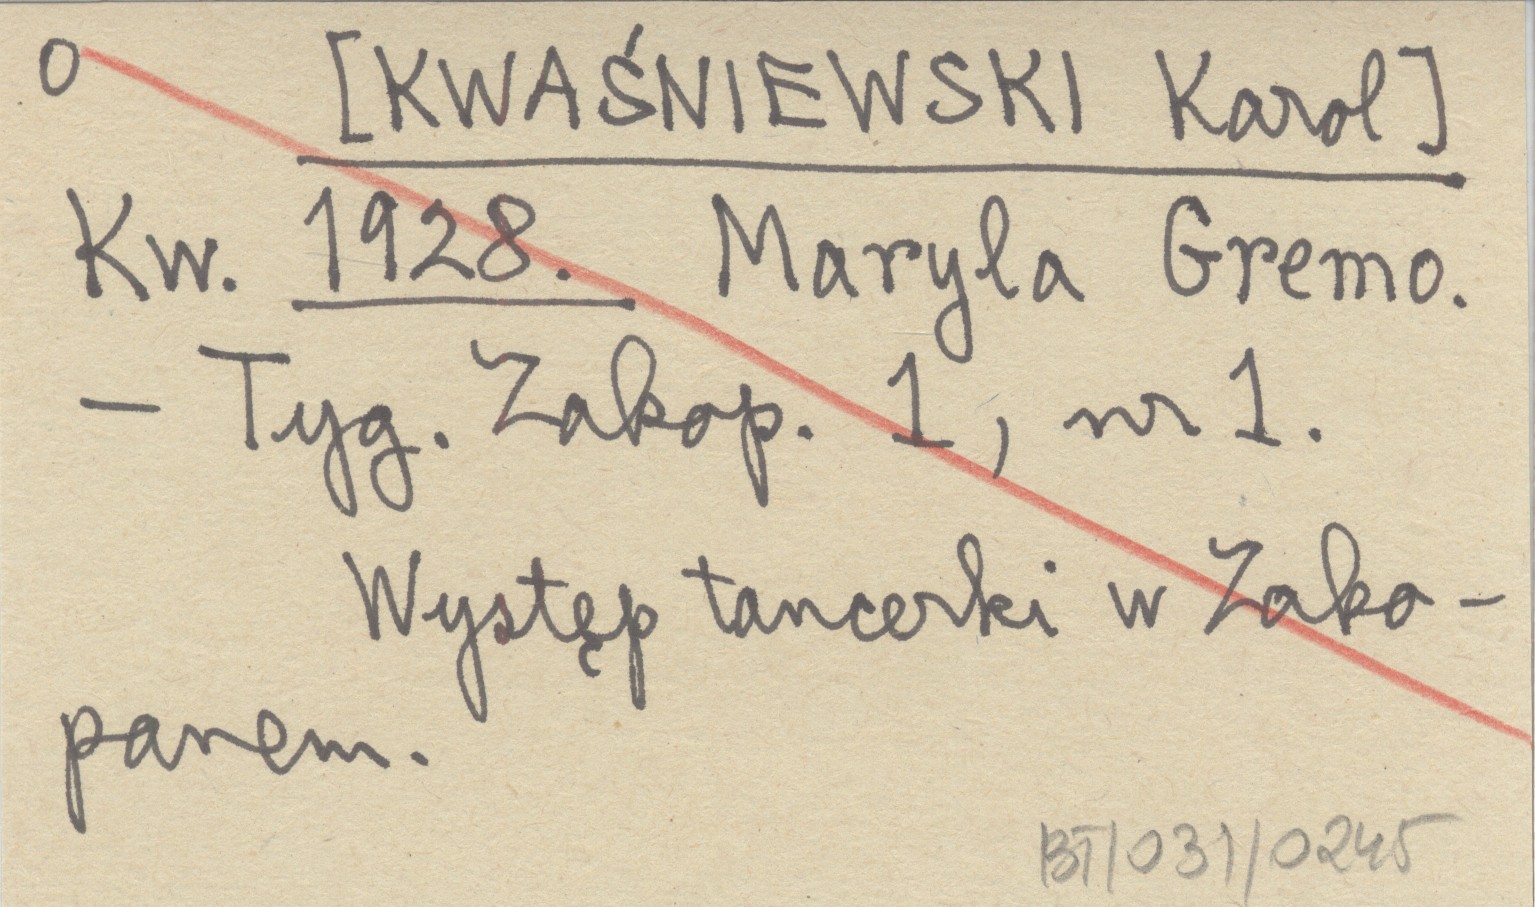 o [KWAŚNIEWSKI Karol]
Kw. 1928. Maryla Gremo.
– Tyg. Zakop. 1, nr 1.
Występ tancerki w Zako-
panem.
BT/031/0245